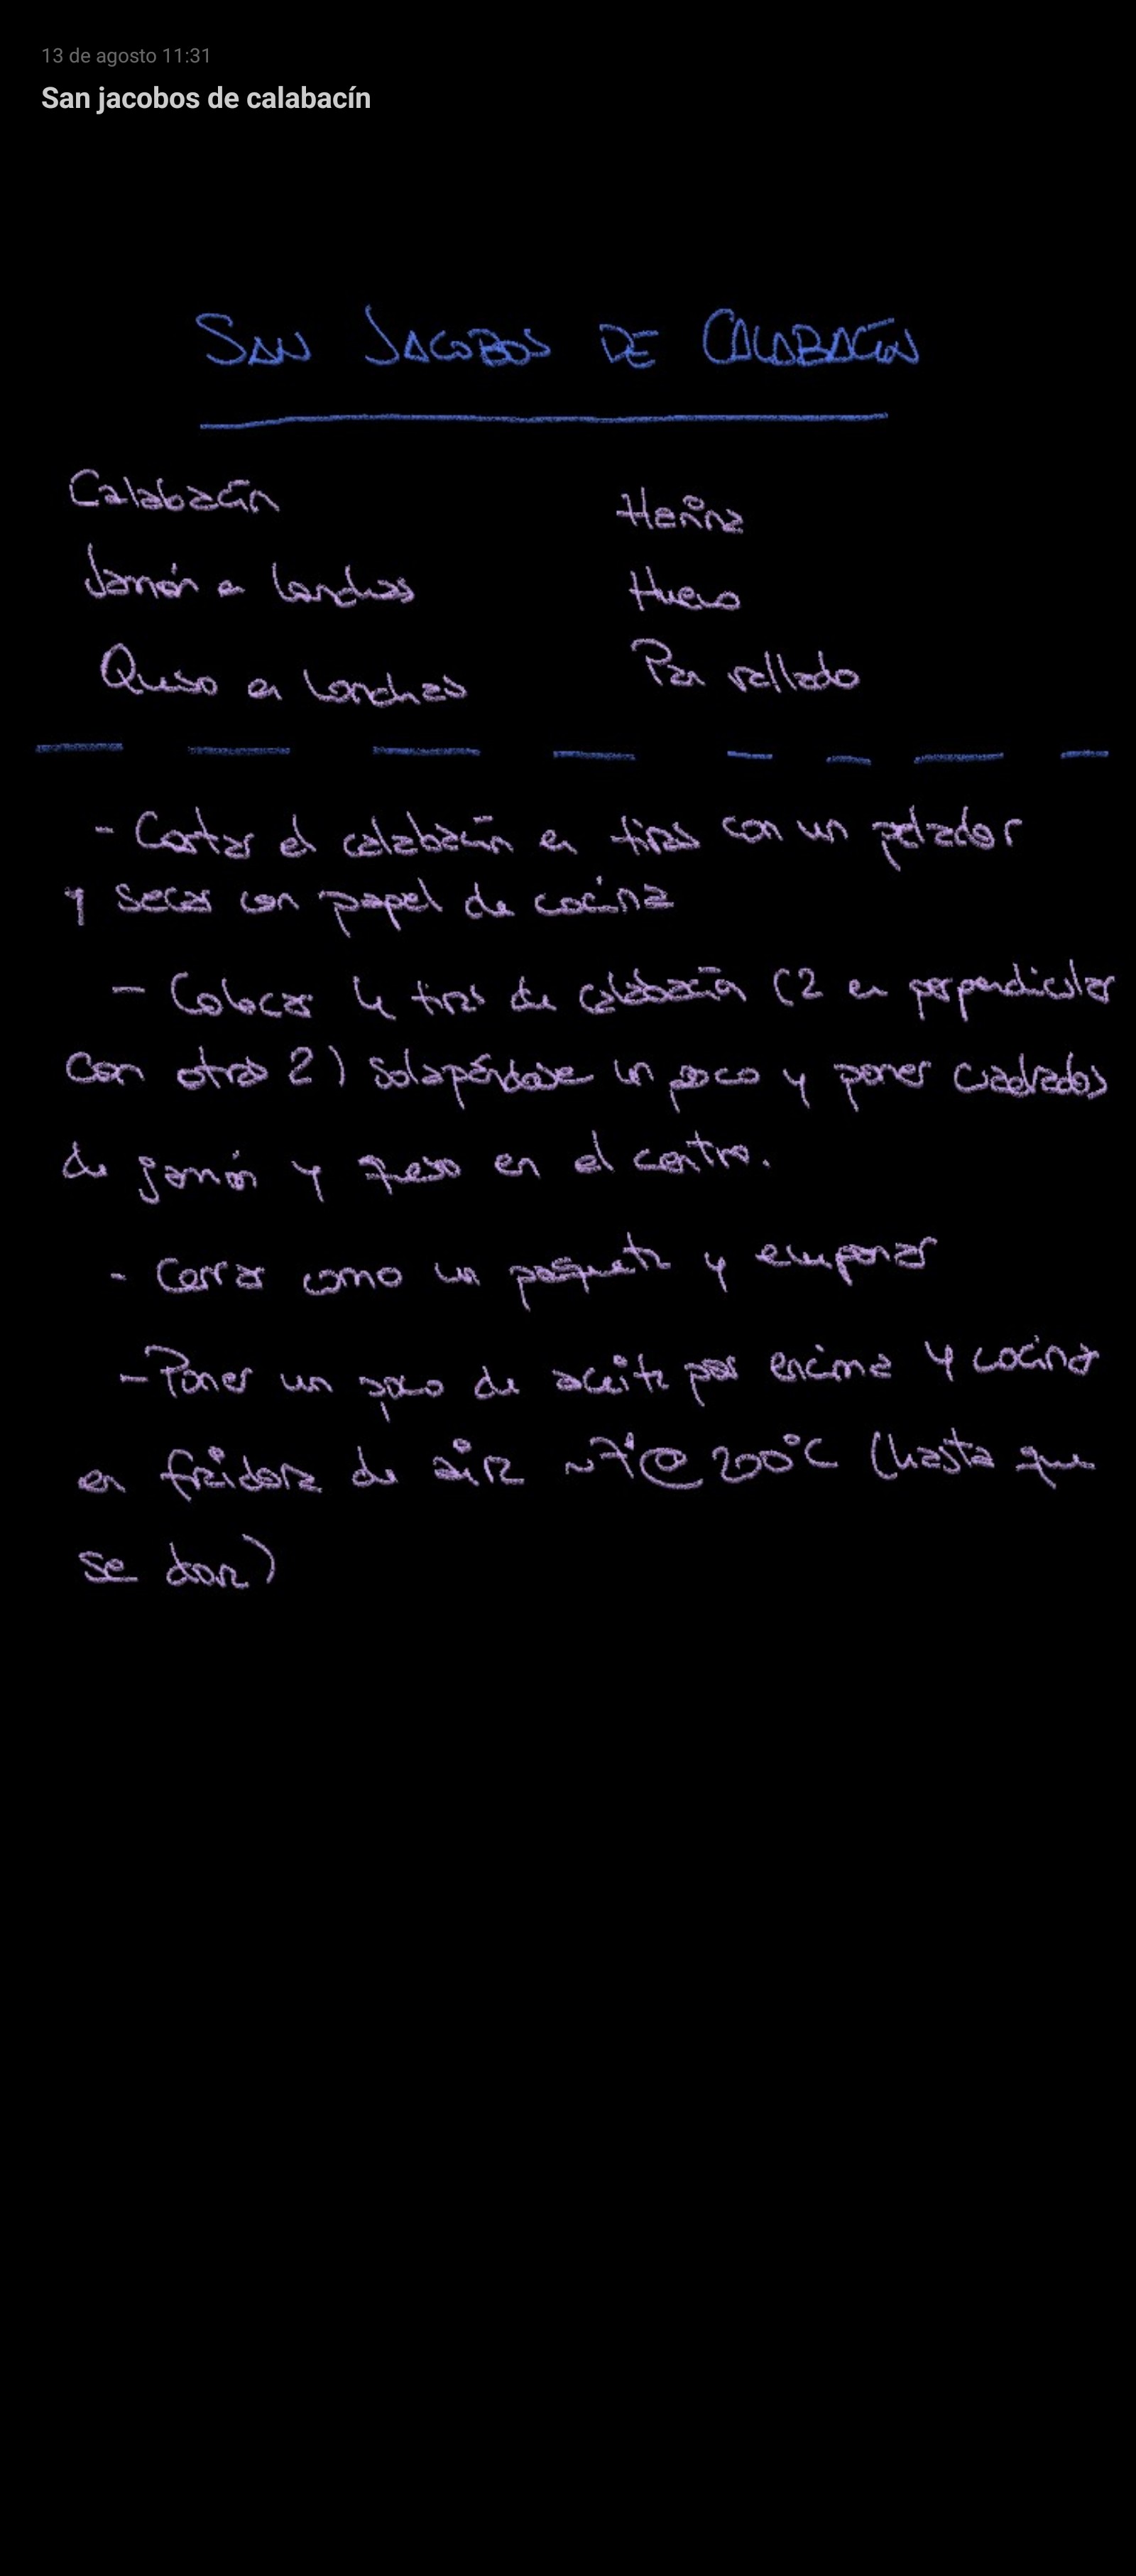 13 de agosto 11:31
San jacobos de calabacín
SAN JACOBOS DE CALABACÍN
Calabacín
Harina
Jamón en lonchas
Huevo
Queso en lonchas
Pan rallado
- Cortar el calabacín en tiras con un pelador
y secar con papel de cocina
- Colocar 4 tiras de calabacín (2 en perpendicular
con otras 2) solapándose un poco y poner cuadrados
de jamón y queso en el centro.
- Cerrar como un paquete y empanar
- Poner un poco de aceite por encima y cocinar
en freidora de aire ~7'@200°C (hasta que
se dore)